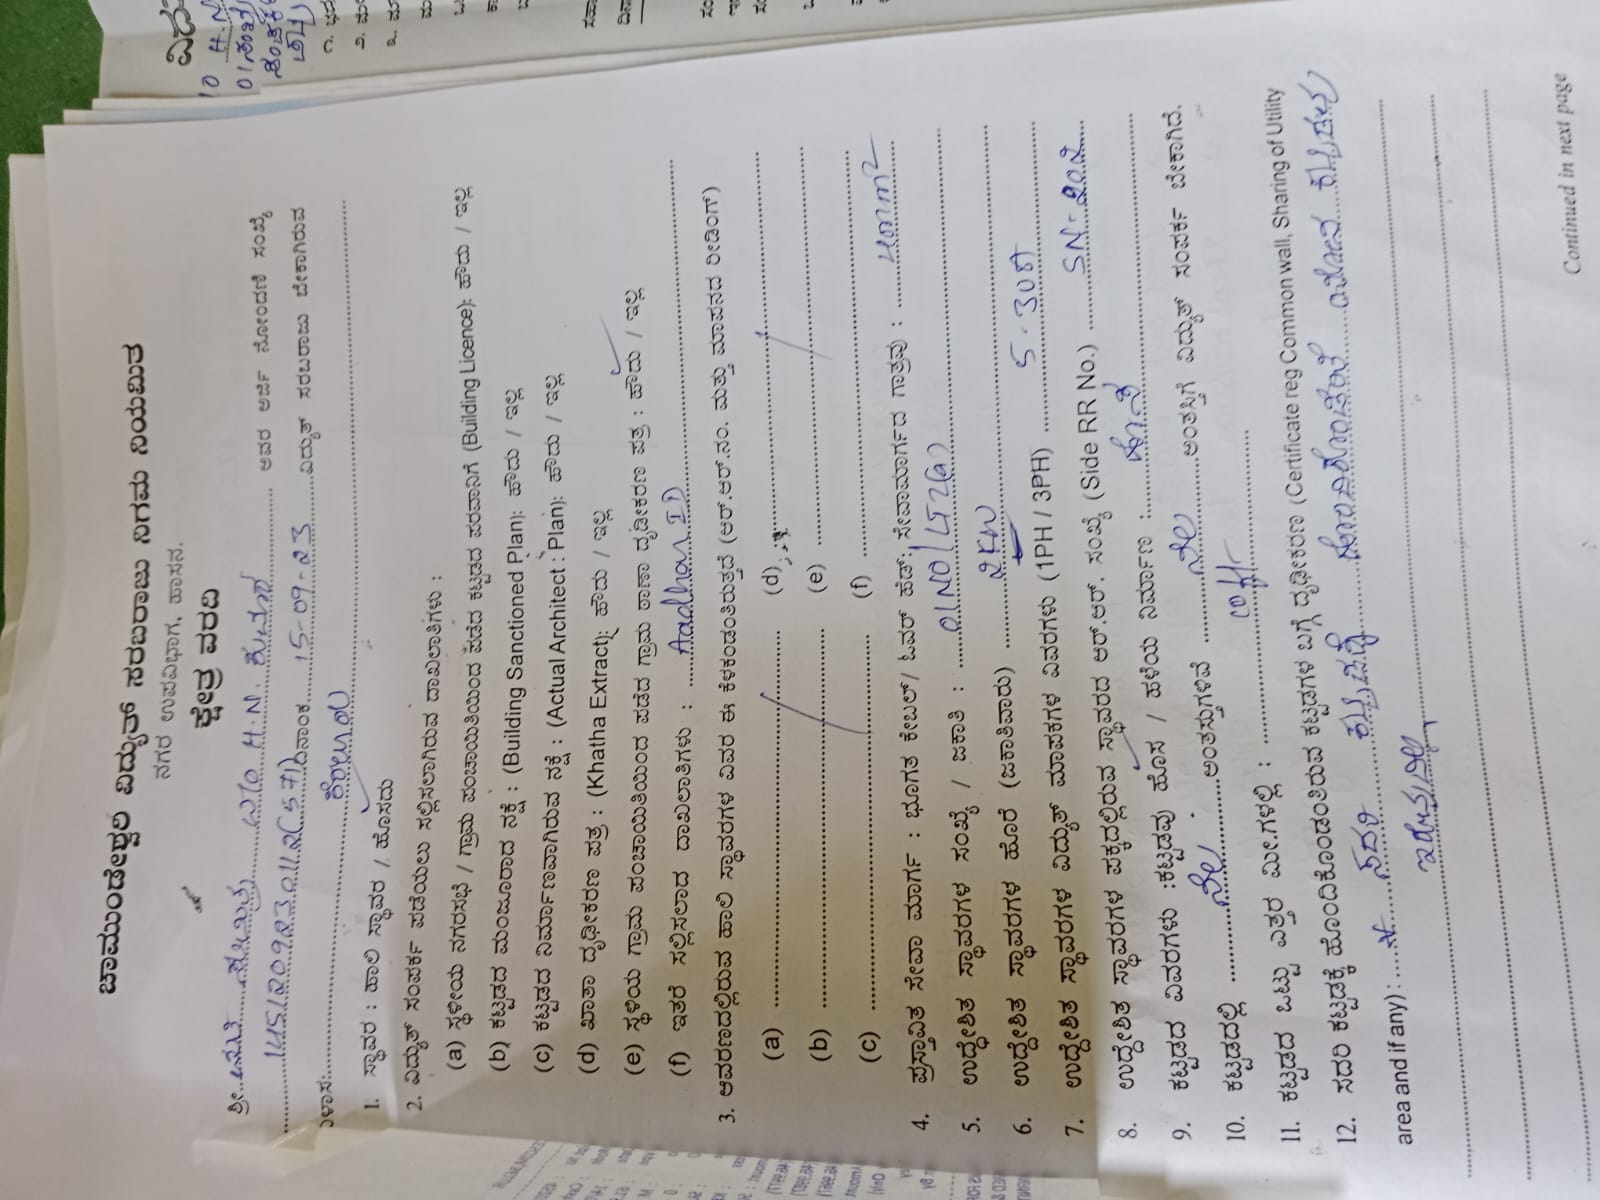 ಚಾಮುಂಡೇಶ್ವರಿ ವಿದ್ಯುತ್ ಸರಬರಾಜು ನಿಗಮ ನಿಯಮಿತ
ನಗರ ಉಪವಿಭಾಗ, ಹಾಸನ.
ಕ್ಷೇತ್ರ ವರದಿ
ಶ್ರೀ H.N. ಅವರ ಅರ್ಜಿ ನೋಂದಣಿ ಸಂಖ್ಯೆ
ದಿನಾಂಕ 15-09-23 ವಿದ್ಯುತ್ ಸರಬರಾಜು ಬೇಕಾಗಿರುವ
1. ಸ್ಥಾವರ : ಹಾಲಿ ಸ್ಥಾವರ / ಹೊಸದು
2. ವಿದ್ಯುತ್ ಸಂಪರ್ಕ ಪಡೆಯಲು ಸಲ್ಲಿಸಲಾಗಿರುವ ದಾಖಲಾತಿಗಳು :
(a) ಸ್ಥಳೀಯ ನಗರಸಭೆ / ಗ್ರಾಮ ಪಂಚಾಯಿತಿಯಿಂದ ಪಡೆದ ಕಟ್ಟಡದ ಪರವಾನಿಗೆ (Building Licence): ಹೌದು / ಇಲ್ಲ
(b) ಕಟ್ಟಡದ ಮಂಜೂರಾದ ನಕ್ಷೆ : (Building Sanctioned Plan): ಹೌದು / ಇಲ್ಲ
(c) ಕಟ್ಟಡದ ನಿರ್ಮಾಣವಾಗಿರುವ ನಕ್ಷೆ : (Actual Architect : Plan): ಹೌದು / ಇಲ್ಲ
(d) ಖಾತಾ ದೃಢೀಕರಣ ಪತ್ರ : (Khatha Extract): ಹೌದು / ಇಲ್ಲ
(e) ಸ್ಥಳೀಯ ಗ್ರಾಮ ಪಂಚಾಯಿತಿಯಿಂದ ಪಡೆದ ಗ್ರಾಮ ಠಾಣಾ ದೃಢೀಕರಣ ಪತ್ರ : ಹೌದು / ಇಲ್ಲ
(f) ಇತರೆ ಸಲ್ಲಿಸಲಾದ ದಾಖಲಾತಿಗಳು : Aadhar ID
3. ಆವರಣದಲ್ಲಿರುವ ಹಾಲಿ ಸ್ಥಾವರಗಳ ವಿವರ ಈ ಕೆಳಕಂಡಂತಿರುತ್ತದೆ (ಆರ್.ಆರ್.ನಂ. ಮತ್ತು ಮಾಪನದ ರೀಡಿಂಗ್)
(a) (d)
(b) (e)
(c) (f)
4. ಪ್ರಸ್ತಾವಿತ ಸೇವಾ ಮಾರ್ಗ : ಭೂಗತ ಕೇಬಲ್/ ಓವರ್ ಹೆಡ್: ಸೇವಾಮಾರ್ಗದ ಗಾತ್ರವು :
5. ಉದ್ದೇಶಿತ ಸ್ಥಾವರಗಳ ಸಂಖ್ಯೆ / ಜಕಾತಿ : 01NO/LT2(a)
6. ಉದ್ದೇಶಿತ ಸ್ಥಾವರಗಳ ಹೊರೆ (ಜಕಾತಿವಾರು) 2 KW
7. ಉದ್ದೇಶಿತ ಸ್ಥಾವರಗಳ ವಿದ್ಯುತ್ ಮಾಪಕಗಳ ವಿವರಗಳು (1PH / 3PH) 5-30A
8. ಉದ್ದೇಶಿತ ಸ್ಥಾವರಗಳ ಪಕ್ಕದಲ್ಲಿರುವ ಸ್ಥಾವರದ ಆರ್.ಆರ್. ಸಂಖ್ಯೆ (Side RR No.) SN-202
9. ಕಟ್ಟಡದ ವಿವರಗಳು :ಕಟ್ಟಡವು ಹೊಸ / ಹಳೆಯ ನಿರ್ಮಾಣ : ಹೊಸ
10. ಕಟ್ಟಡದಲ್ಲಿ ನೆಲ ಅಂತಸ್ತುಗಳಿವೆ ನೆಲ ಅಂತಸ್ತಿಗೆ ವಿದ್ಯುತ್ ಸಂಪರ್ಕ ಬೇಕಾಗಿದೆ.
11. ಕಟ್ಟಡದ ಒಟ್ಟು ಎತ್ತರ ಮೀ.ಗಳಲ್ಲಿ :
12. ಸದರಿ ಕಟ್ಟಡಕ್ಕೆ ಹೊಂದಿಕೊಂಡಂತಿರುವ ಕಟ್ಟಡಗಳ ಬಗ್ಗೆ ದೃಢೀಕರಣ (Certificate reg Common wall, Sharing of Utility
area and if any) : ಸದರಿ ಕಟ್ಟಡಕ್ಕೆ ಹೊಂದಿಕೊಂಡಂತೆ ಯಾವ ಕಟ್ಟಡವೂ
ಇರುವುದಿಲ್ಲ
Continued in next page